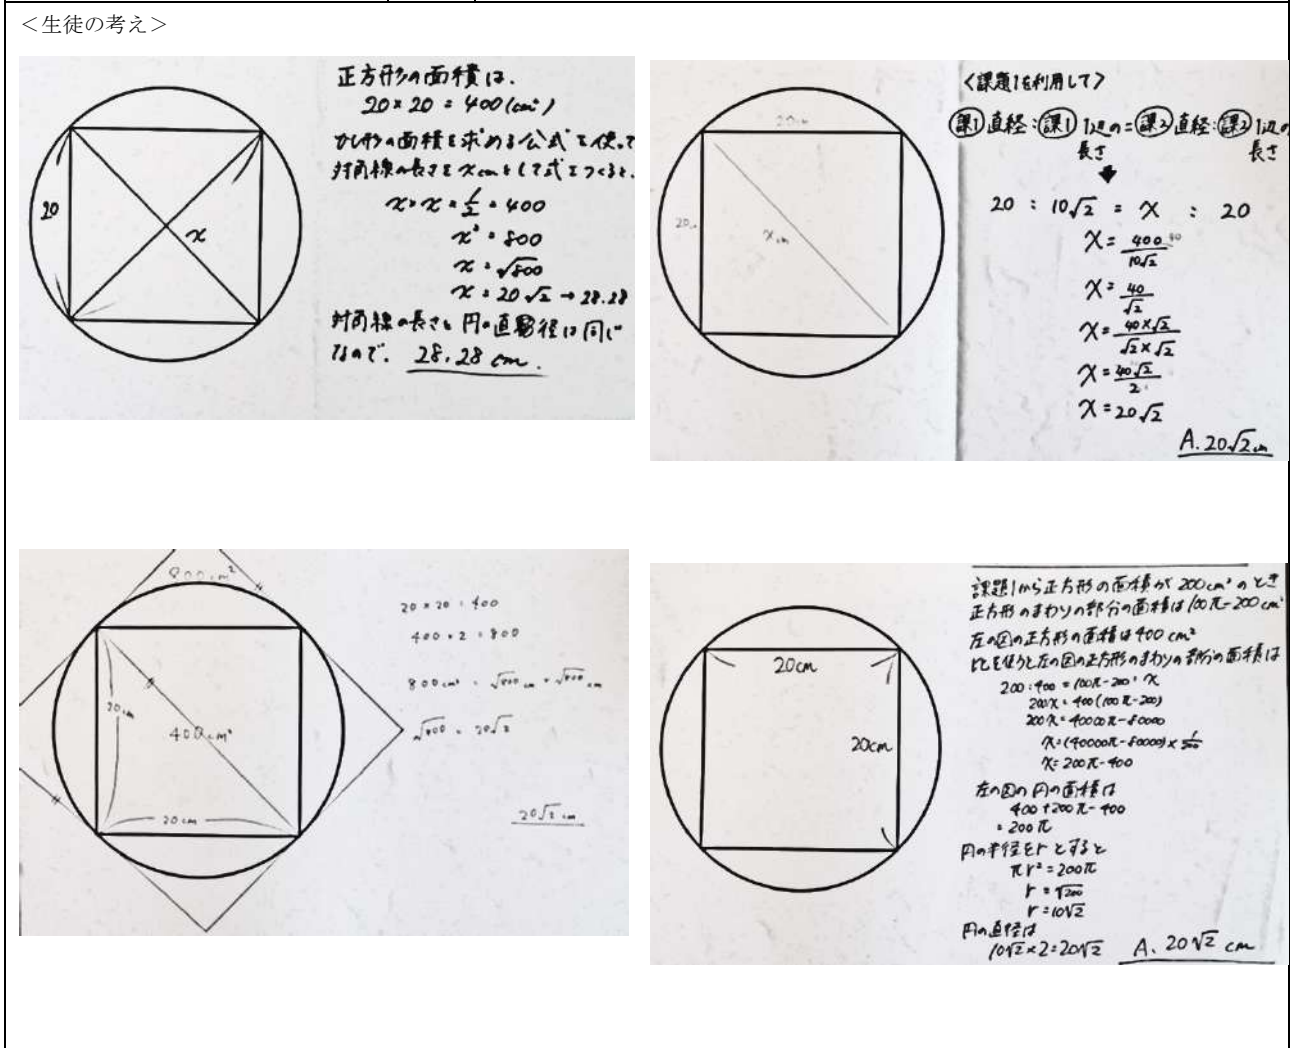 ＜生徒の考え＞
正方形の面積は、
20×20＝400(cm²)
ひし形の面積を求める公式を使って
対角線の長さをxcmとして式をつくると、
x×x×1/2＝400
x²＝800
x＝√800
x＝20√2→28.28
対角線の長さと円の直径は同じ
なので、28.28cm.
20
x
＜課題1を利用して＞
課1 直経：課1 1辺の＝課2 直経：課2 1辺の
長さ 長さ
20 : 10√2 = x : 20
x＝400/10√2 40
x＝40/√2
x＝40×√2/√2×√2
x＝40√2/2
x＝20√2
A. 20√2cm
20cm
20cm
xcm
800cm²
20cm
400cm²
20cm
20×20＝400
400×2＝800
800cm²＝√800cm×√800cm
√800＝20√2
20√2cm
20cm
20cm
課題1から正方形の面積が200cm²のとき
正方形のまわりの部分の面積は100π-200cm²
左の図の正方形の面積は400cm²
比を使うと左の図の正方形のまわりの部分の面積は
200:400＝100π-200:x
200x＝400(100π-200)
200x＝40000π-80000
x＝(40000π-80000)×1/200
x＝200π-400
左の図の円の面積は
400+200π-400
＝200π
円の半径をrとすると
πr²＝200π
r＝√200
r＝10√2
円の直径は
10√2×2＝20√2 A. 20√2 cm